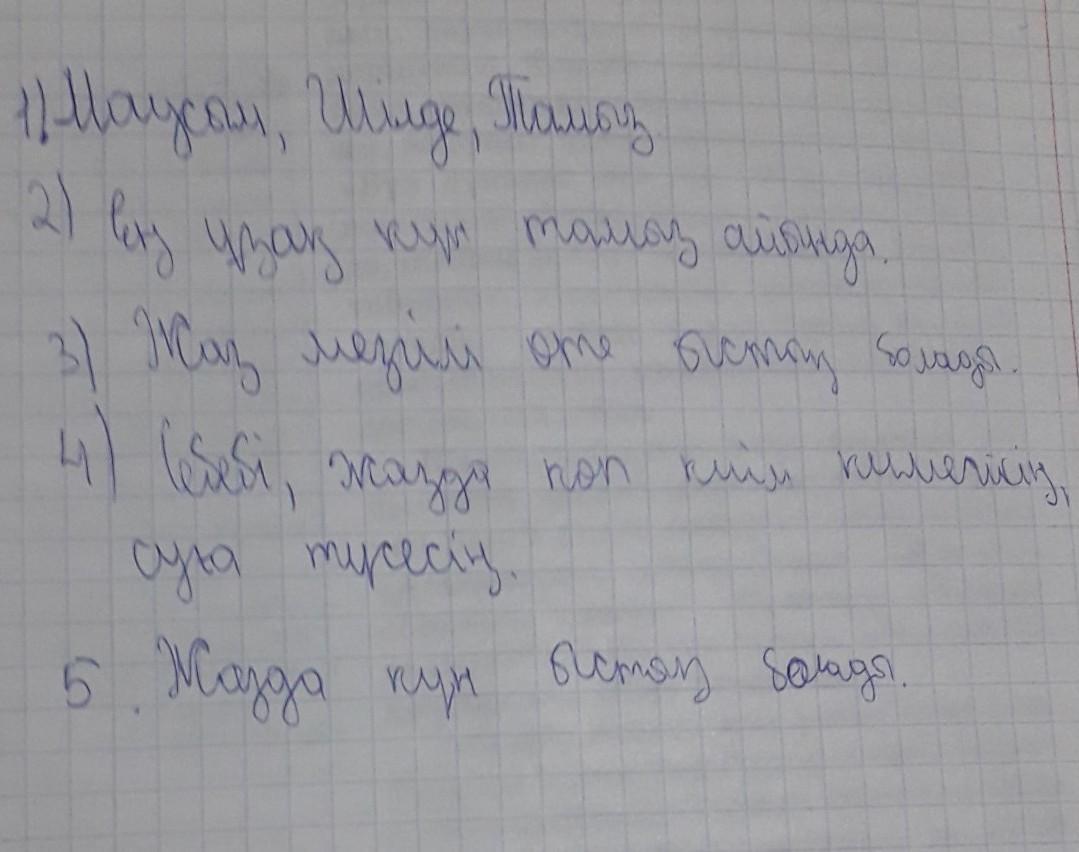 1) Маусым, Шілде, Тамыз
2) Ең ұзақ күн тамыз айында.
3) Жаз мезгілі өте ыстық болады.
4) Себебі, жазда көп киім кимейсің,
суға түсесің.
5. Жазда күн ыстық болады.